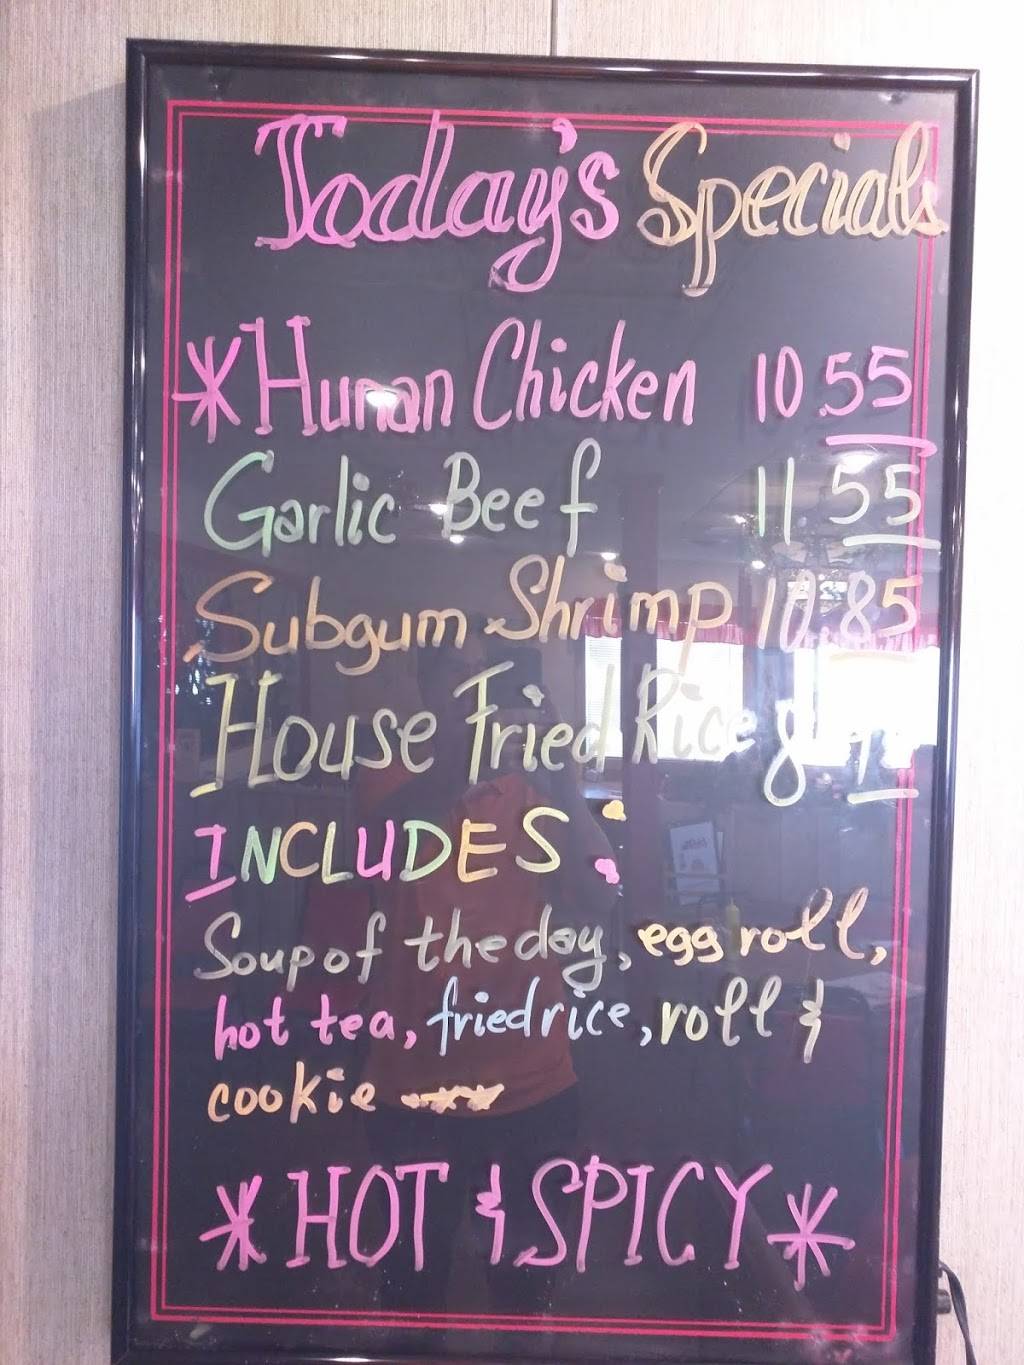 Today's Specials
*Hunan Chicken 10.55
Garlic Beef 11 55
Subgum Shrimp 10.85
House Fried Rice
INCLUDES:
Soup of the day, egg roll,
hot tea, fried rice, roll &
cookie
*HOT & SPICY*